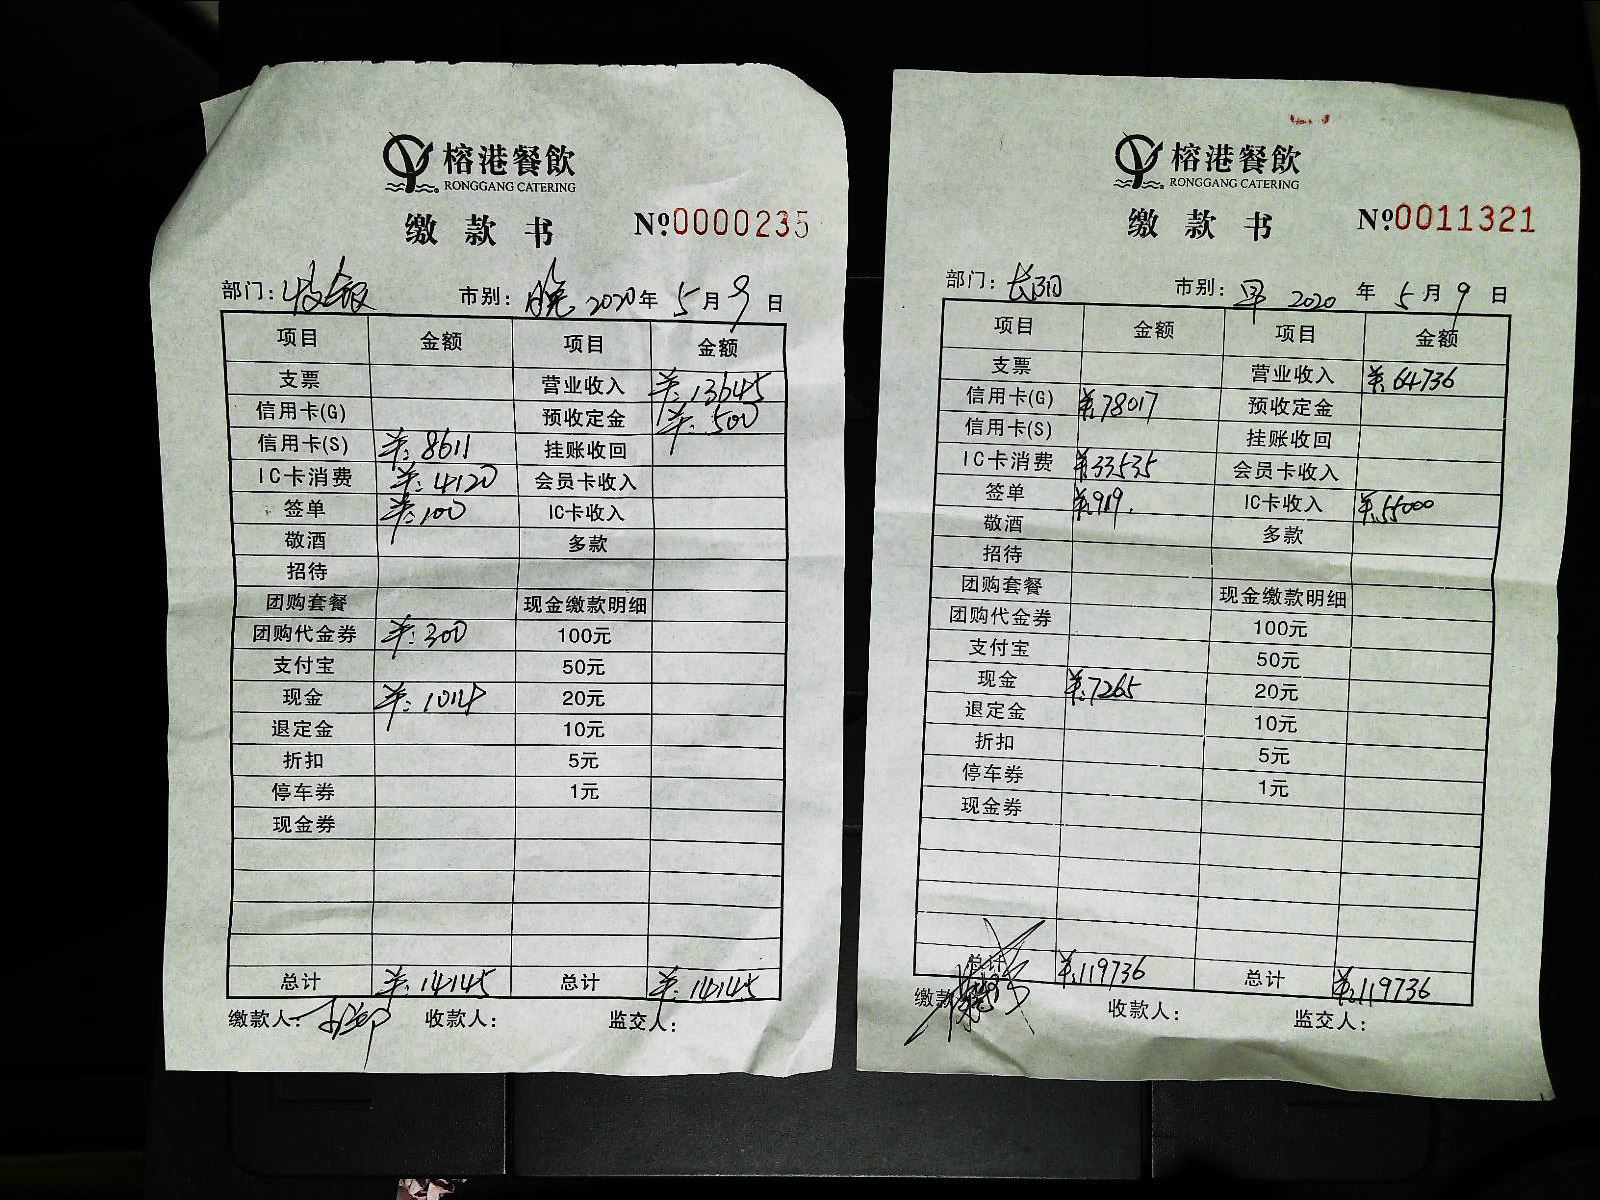 榕港餐飲
RONGGANG CATERING
缴款书 №0000235
部门: 市别: 晚 2020年 5月 9日
项目 金额 项目 金额
支票 营业收入 ¥:13645
信用卡(G) 预收定金 ¥:500
信用卡(S) ¥:8611 挂账收回
IC卡消费 ¥:4120 会员卡收入
签单 ¥:100 IC卡收入
敬酒 多款
招待
团购套餐 现金缴款明细
团购代金券 ¥:300 100元
支付宝 50元
现金 ¥:1014 20元
退定金 10元
折扣 5元
停车券 1元
现金券
总计 ¥:14145 总计 ¥:14145
缴款人: 收款人: 监交人:
榕港餐飲
RONGGANG CATERING
缴款书 №0011321
部门: 长阳 市别: 早 2020年 5月 9日
项目 金额 项目 金额
支票 营业收入 ¥:64736
信用卡(G) ¥:78017 预收定金
信用卡(S) 挂账收回
IC卡消费 ¥33535 会员卡收入
签单 ¥:919. IC卡收入 ¥:55000
敬酒 多款
招待
团购套餐 现金缴款明细
团购代金券 100元
支付宝 50元
现金 ¥:7265 20元
退定金 10元
折扣 5元
停车券 1元
现金券
总计 ¥:119736 总计 ¥:119736
缴款 收款人: 监交人: